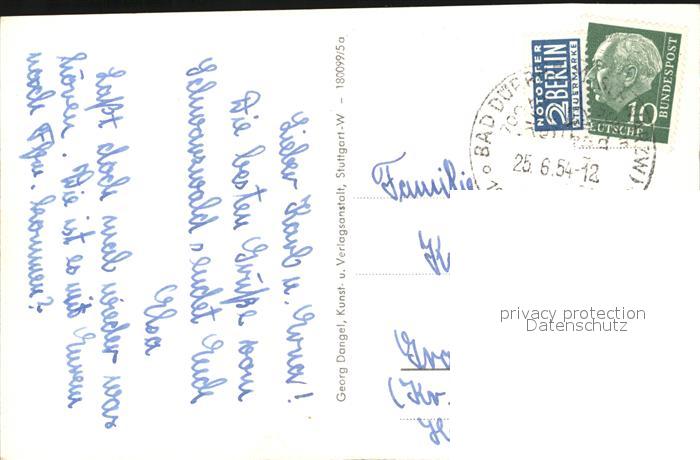 Lieber Karl u. Erna!
Die besten Grüße vom
Schwarzwald sendet Euch
Elsa
Laßt doch mal wieder was
hören. Wie ist es mit Eurem
nach Ffm. kommen?
Georg Dangel, Kunst- u. Verlagsanstalt, Stuttgart-W – 180099/5a
NOTOPFER
2 BERLIN
STEUERMARKE
10
DEUTSCHE
BUNDESPOST
BAD DÜRR
25.6.54-12
Familie
K
Gro
(Kr.
privacy protection
Datenschutz